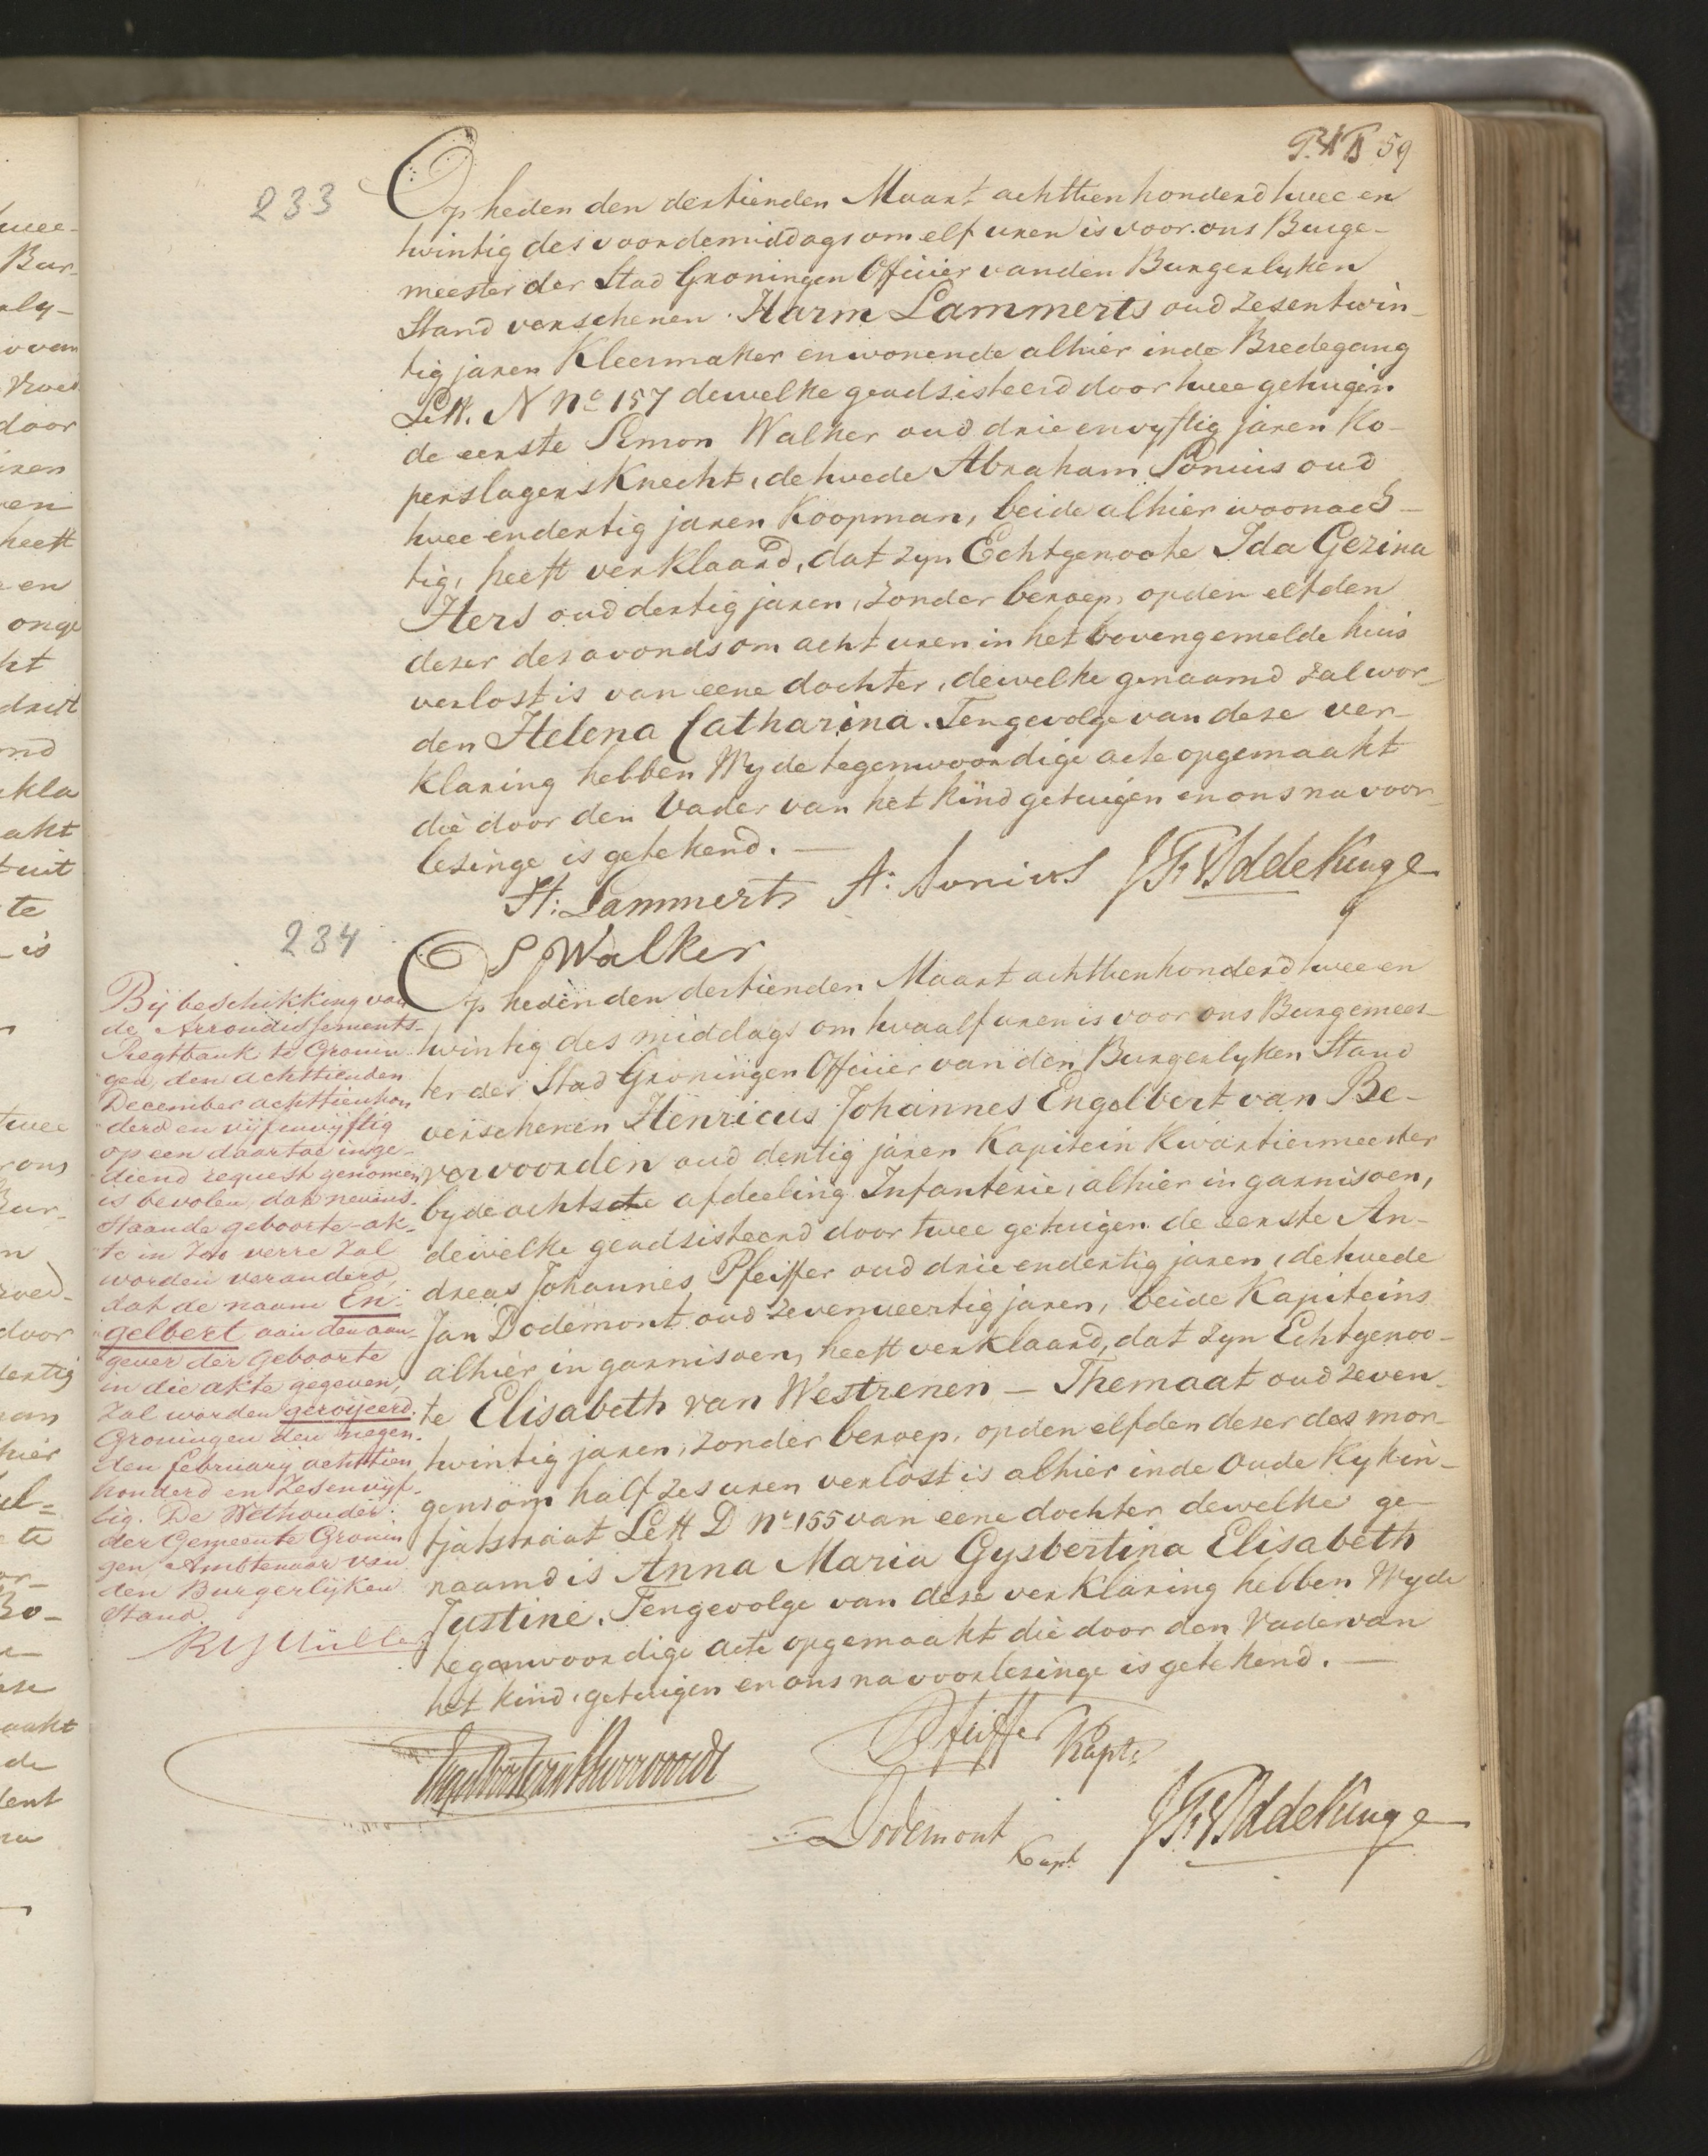 59
233
Op heden den dertienden Maart achttienhonderd twee en
twintig des voordemiddags om elf uren is voor ons Burge-
meester der Stad Groningen Officier vanden Burgerlyken
Stand verschenen Harm Lammerts oud zesentwin-
tig jaren Kleermaker en wonende alhier inde Bredegang
Lett. N No 157 dewelke geadsisteerd door twee getuigen
de eerste Simon Walker oud drie envyftig jaren Ko-
perslagersknecht, de twede Abraham Sonius oud
twee endertig jaren Koopman, beide alhier woonach-
tig, heeft verklaard, dat zyn Echtgenoote Ida Gezina
Hers oud dertig jaren, zonder beroep, opden elfden
dezer des avonds om acht uren in het bovengemelde huis
verlost is van eene dochter, dewelke genaamd zal wor-
den Helena Catharina. Tengevolge van deze ver-
klaring hebben Wy de tegenwoordige acte opgemaakt
die door den Vader van het kind getuigen en ons na voor-
lezinge is getekend. —
H: Lammerts A: Sonius
S Walker
234
Op heden den dertienden Maart achttienhonderd twee en
twintig des middags om twaalf uren is voor ons Burgemees-
ter der Stad Groningen Officier van den Burgerlyken Stand
verschenen Henricus Johannes Engelbert van Be-
vervoorden oud dertig jaren Kapitein Kwartiermeester
by de achtste afdeeling Infanterie, alhier in garnisoen,
dewelke geadsisteerd door twee getuigen de eerste An-
dreas Johannes Pfeiffer oud drie endertig jaren, de twede
Jan Dodémont oud zevenveertig jaren, beide Kapiteins
alhier in garnisoen, heeft verklaard, dat zyn Echtgenoo-
te Elisabeth van Westrenen — Themaat oud zeven-
twintig jaren, zonder beroep, opden elfden dezer des mor-
gens om half zes uren verlost is alhier inde Oude Kykin-
tjatstraat Lett D No 155 van eene dochter dewelke ge-
naamd is Anna Maria Gysbertina Elisabeth
Justine. Tengevolge van deze verklaring hebben Wy de
tegenwoordige acte opgemaakt die door den Vader van
het kind, getuigen en ons na voorlezinge is getekend. —
Pfeiffer Kapt.
Dodemont Kapt
Bij beschikking van
de Arrondissements-
Regtbank te Gronin-
gen, den achttienden
December achttienhon
derd en vijfenvijftig
op een daartoe inge-
diend request genomen,
is bevolen, dat nevens-
staande geboorte-ak-
te in zoo verre zal
worden veranderd,
dat de naam En-
gelbert aan den aan-
gever der geboorte
in die akte gegeven,
zal worden geroijeerd.
Groningen den negen-
den february achttien
honderd en zesenvijf-
tig. De Wethouder
der Gemeente Gronin
gen, Ambtenaar van
den Burgerlijken
Stand